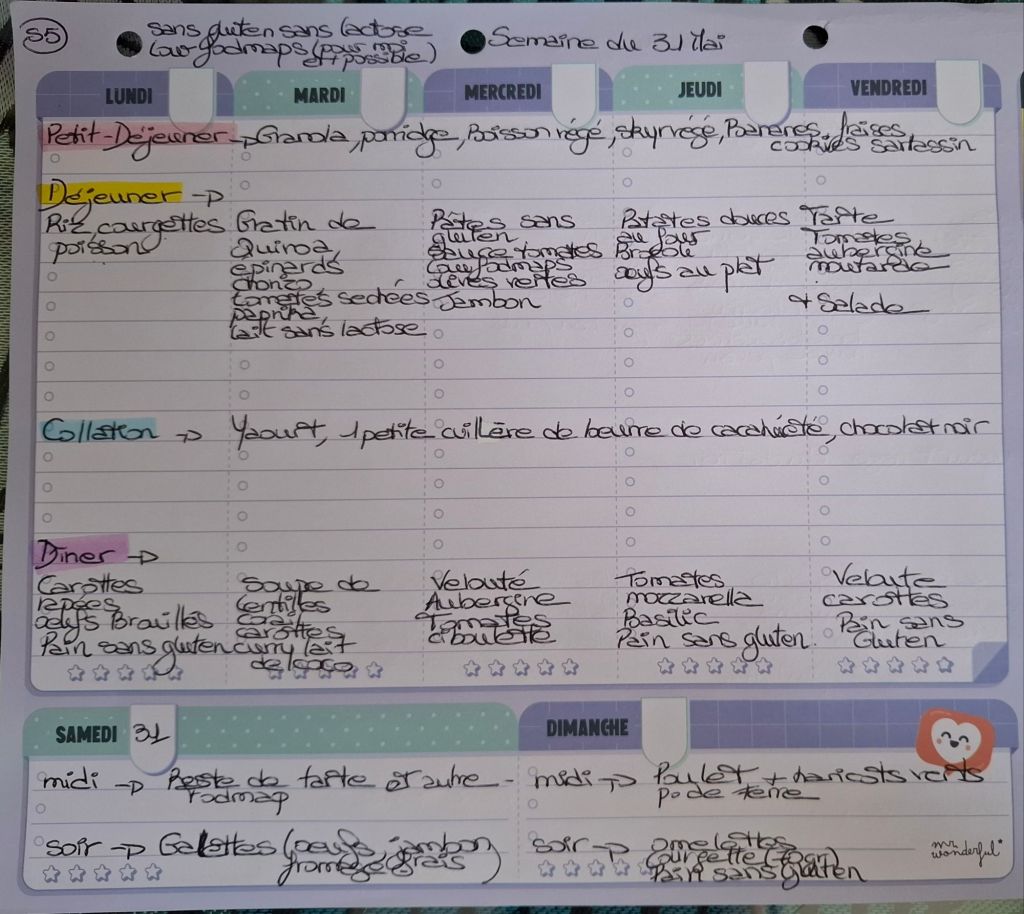 S5
sans gluten sans lactose
Low fodmaps (pour moi
et + possible)
Semaine du 31 Mai
LUNDI
MARDI
MERCREDI
JEUDI
VENDREDI
Petit-Déjeuner → Granola, porridge, Boisson végé, skyr végé, Bananes, fraises,
cookies sarrassin
Déjeuner →
Riz, courgettes
poisson
Gratin de
Quinoa,
épinards
chorizo
tomates sechées
paprika,
lait sans lactose
Pâtes sans
gluten
sauce tomates
Low fodmaps
olives vertes
Jambon
Patates douces
au four
Brocoli
oeufs au plat
Tarte
Tomates
aubergine
moutarde
+ Salade
Collation → Yaourt, 1 petite cuillère de beurre de cacahuète, chocolat noir
Diner →
Carottes
rapées
oeufs Brouillés
Pain sans gluten
Soupe de
lentilles
corail
carottes
curry lait
de coco
Velouté
Aubergine
Tomates
ciboulette
Tomates
mozzarella
Basilic
Pain sans gluten.
Veloute
carottes
Pain sans
Gluten
SAMEDI 31
midi → Reste de tarte et autre -
fodmap
soir → Galettes (oeufs jambon
fromage frais)
DIMANCHE
midi → Poulet + haricots verts
p. de terre
soir → omelettes
Courgette
Pain sans gluten
mr.
wonderful*